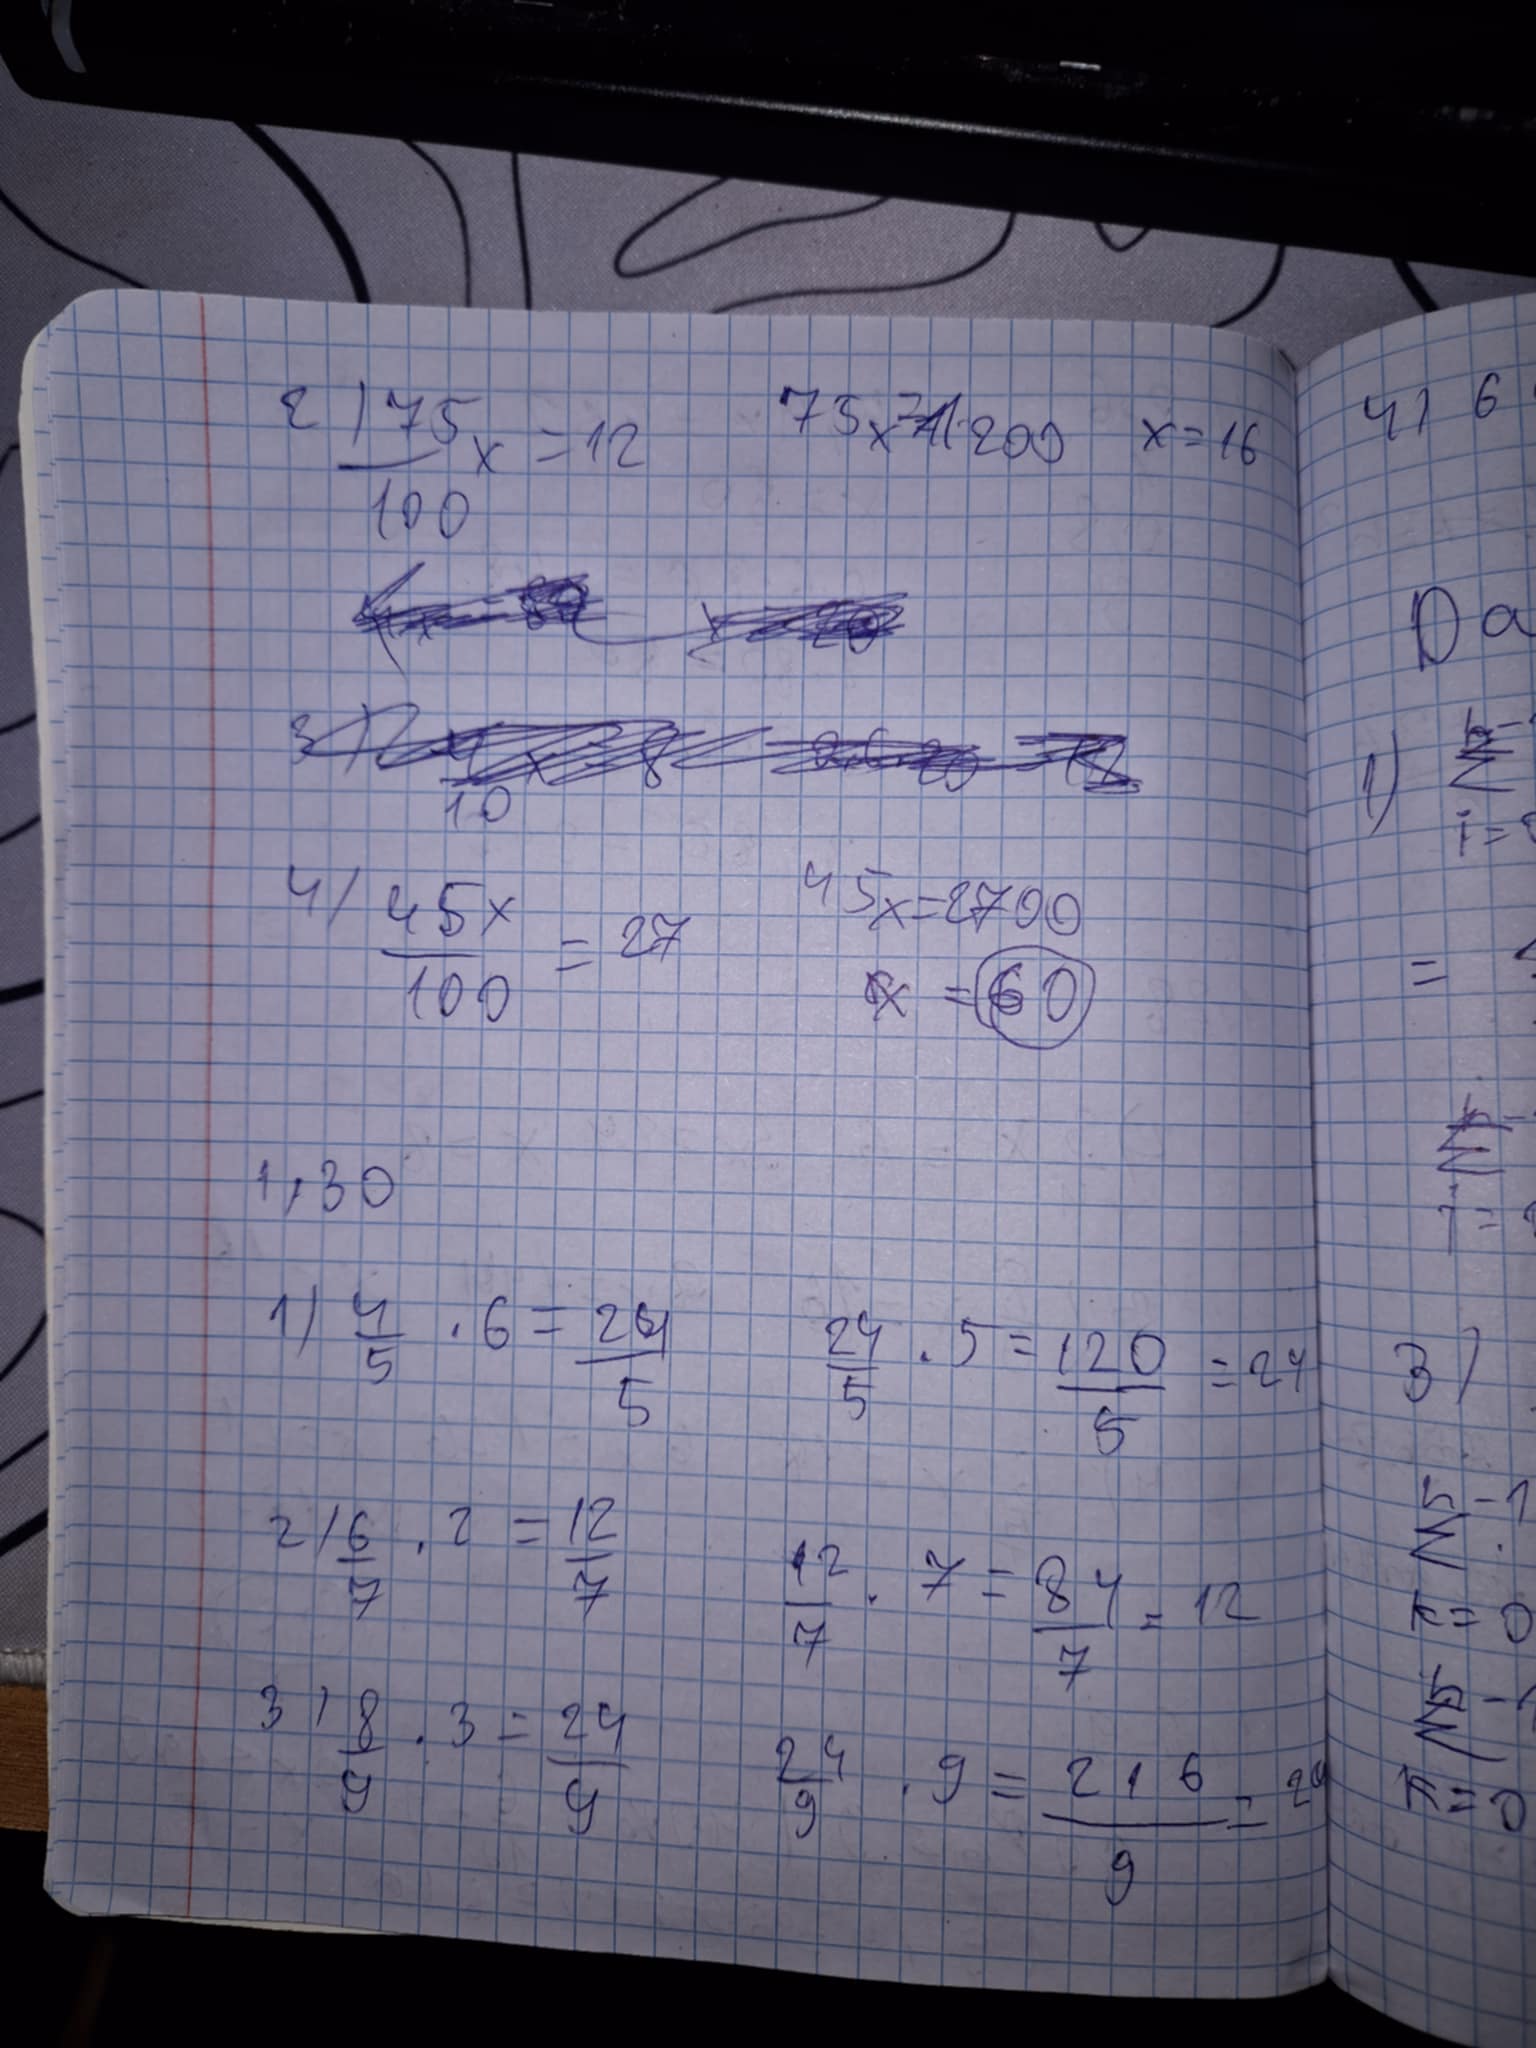 2) 75/100 x = 12 75x = 1200 x = 16
4) 45x/100 = 27 45x = 2700
x = 60
1,30
1) 4/5 · 6 = 24/5 24/5 · 5 = 120/5 = 24
2) 6/7 · 2 = 12/7 12/7 · 7 = 84/7 = 12
3) 8/9 · 3 = 24/9 24/9 · 9 = 216/9 = 24
4) 6
Da
1)
i=
=
i=
3)
5-1
k=0
k=0